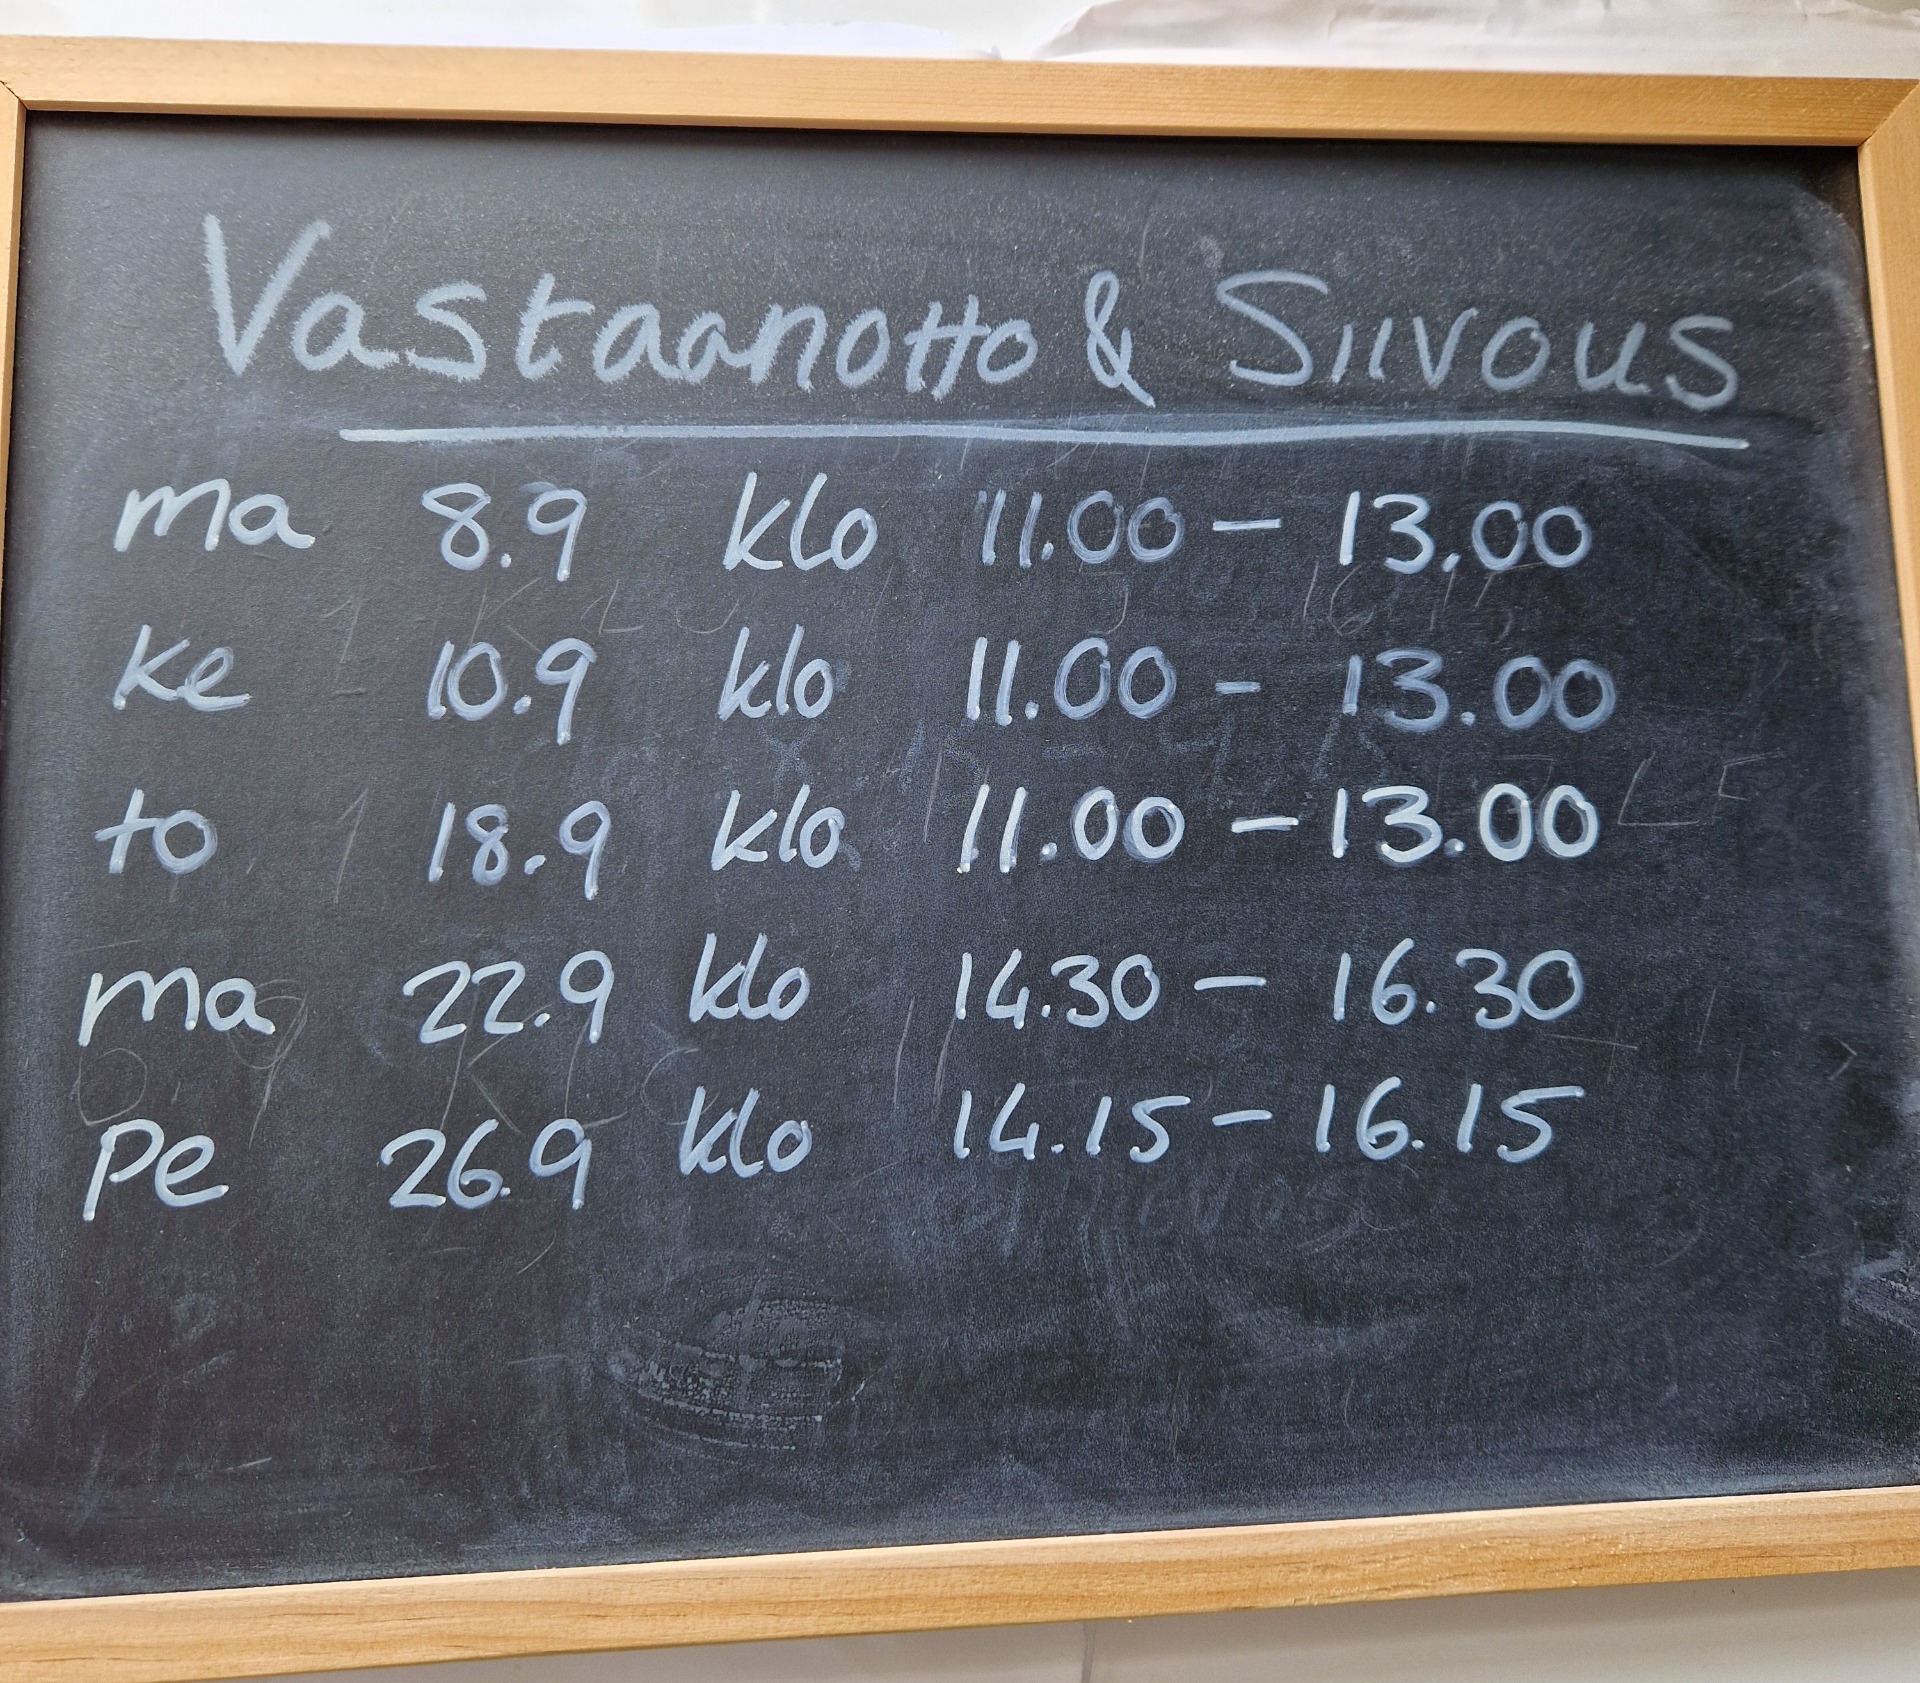 Vastaanotto & Siivous
ma 8.9 klo 11.00 – 13.00
ke 10.9 klo 11.00 – 13.00
to 18.9 klo 11.00 – 13.00
ma 22.9 klo 14.30 – 16.30
pe 26.9 klo 14.15 – 16.15